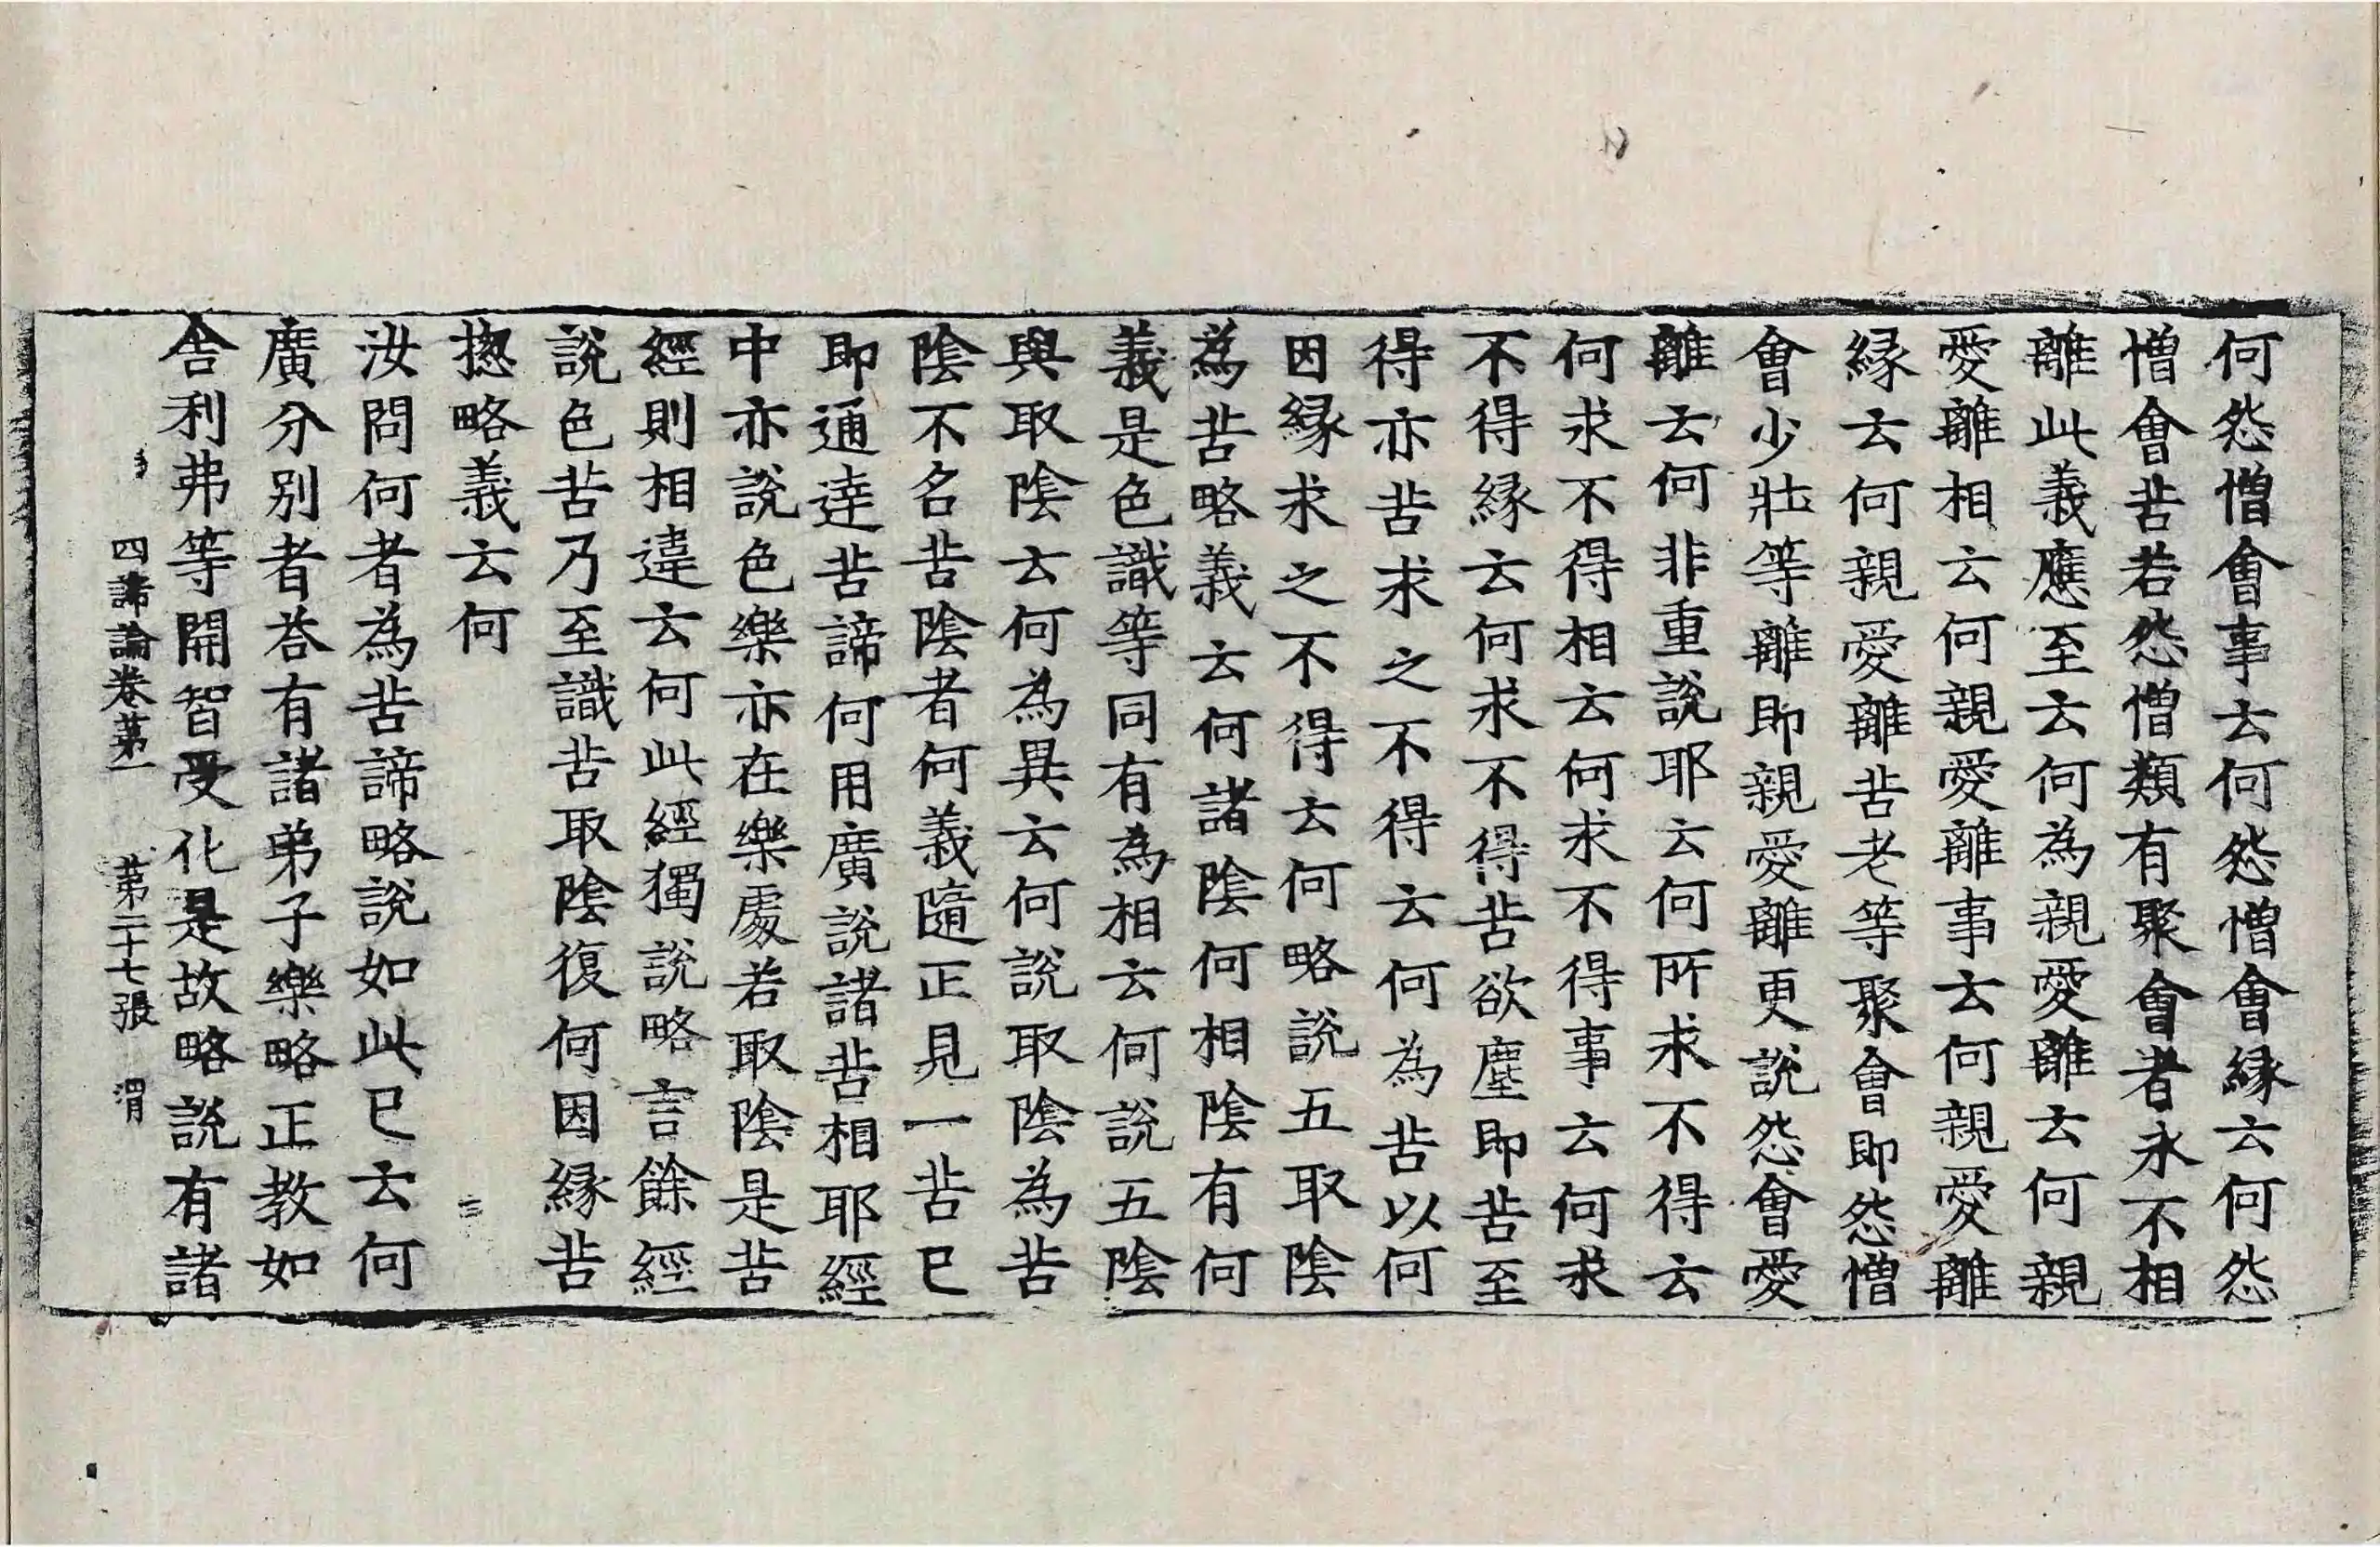 何怨憎會事云何怨憎會緣云何怨
憎會苦若怨憎類有聚會者永不相
離此義應至云何為親愛離云何親
愛離相云何親愛離事云何親愛離
緣云何親愛離苦老等聚會即怨憎
會少壯等離即親愛離更說怨會愛
離云何非重說耶云何所求不得云
何求不得相云何求不得事云何求
不得緣云何求不得苦欲塵即苦至
得亦苦求之不得云何為苦以何
因緣求之不得云何略說五取陰
為苦略義云何諸陰何相陰有何
義是色識等同有為相云何說五陰
與取陰云何為異云何說取陰為苦
陰不名苦陰者何義隨正見一苦已
即通達苦諦何用廣說諸苦相耶經
中亦說色樂亦在樂處若取陰是苦
經則相違云何此經獨說略言餘經
說色苦乃至識苦取陰復何因緣苦
揔略義云何
汝問何者為苦諦略說如此已云何
廣分別者荅有諸弟子樂略正教如
舍利弗等開智受化是故略說有諸
四諦論卷苐一 苐二十七張 渭